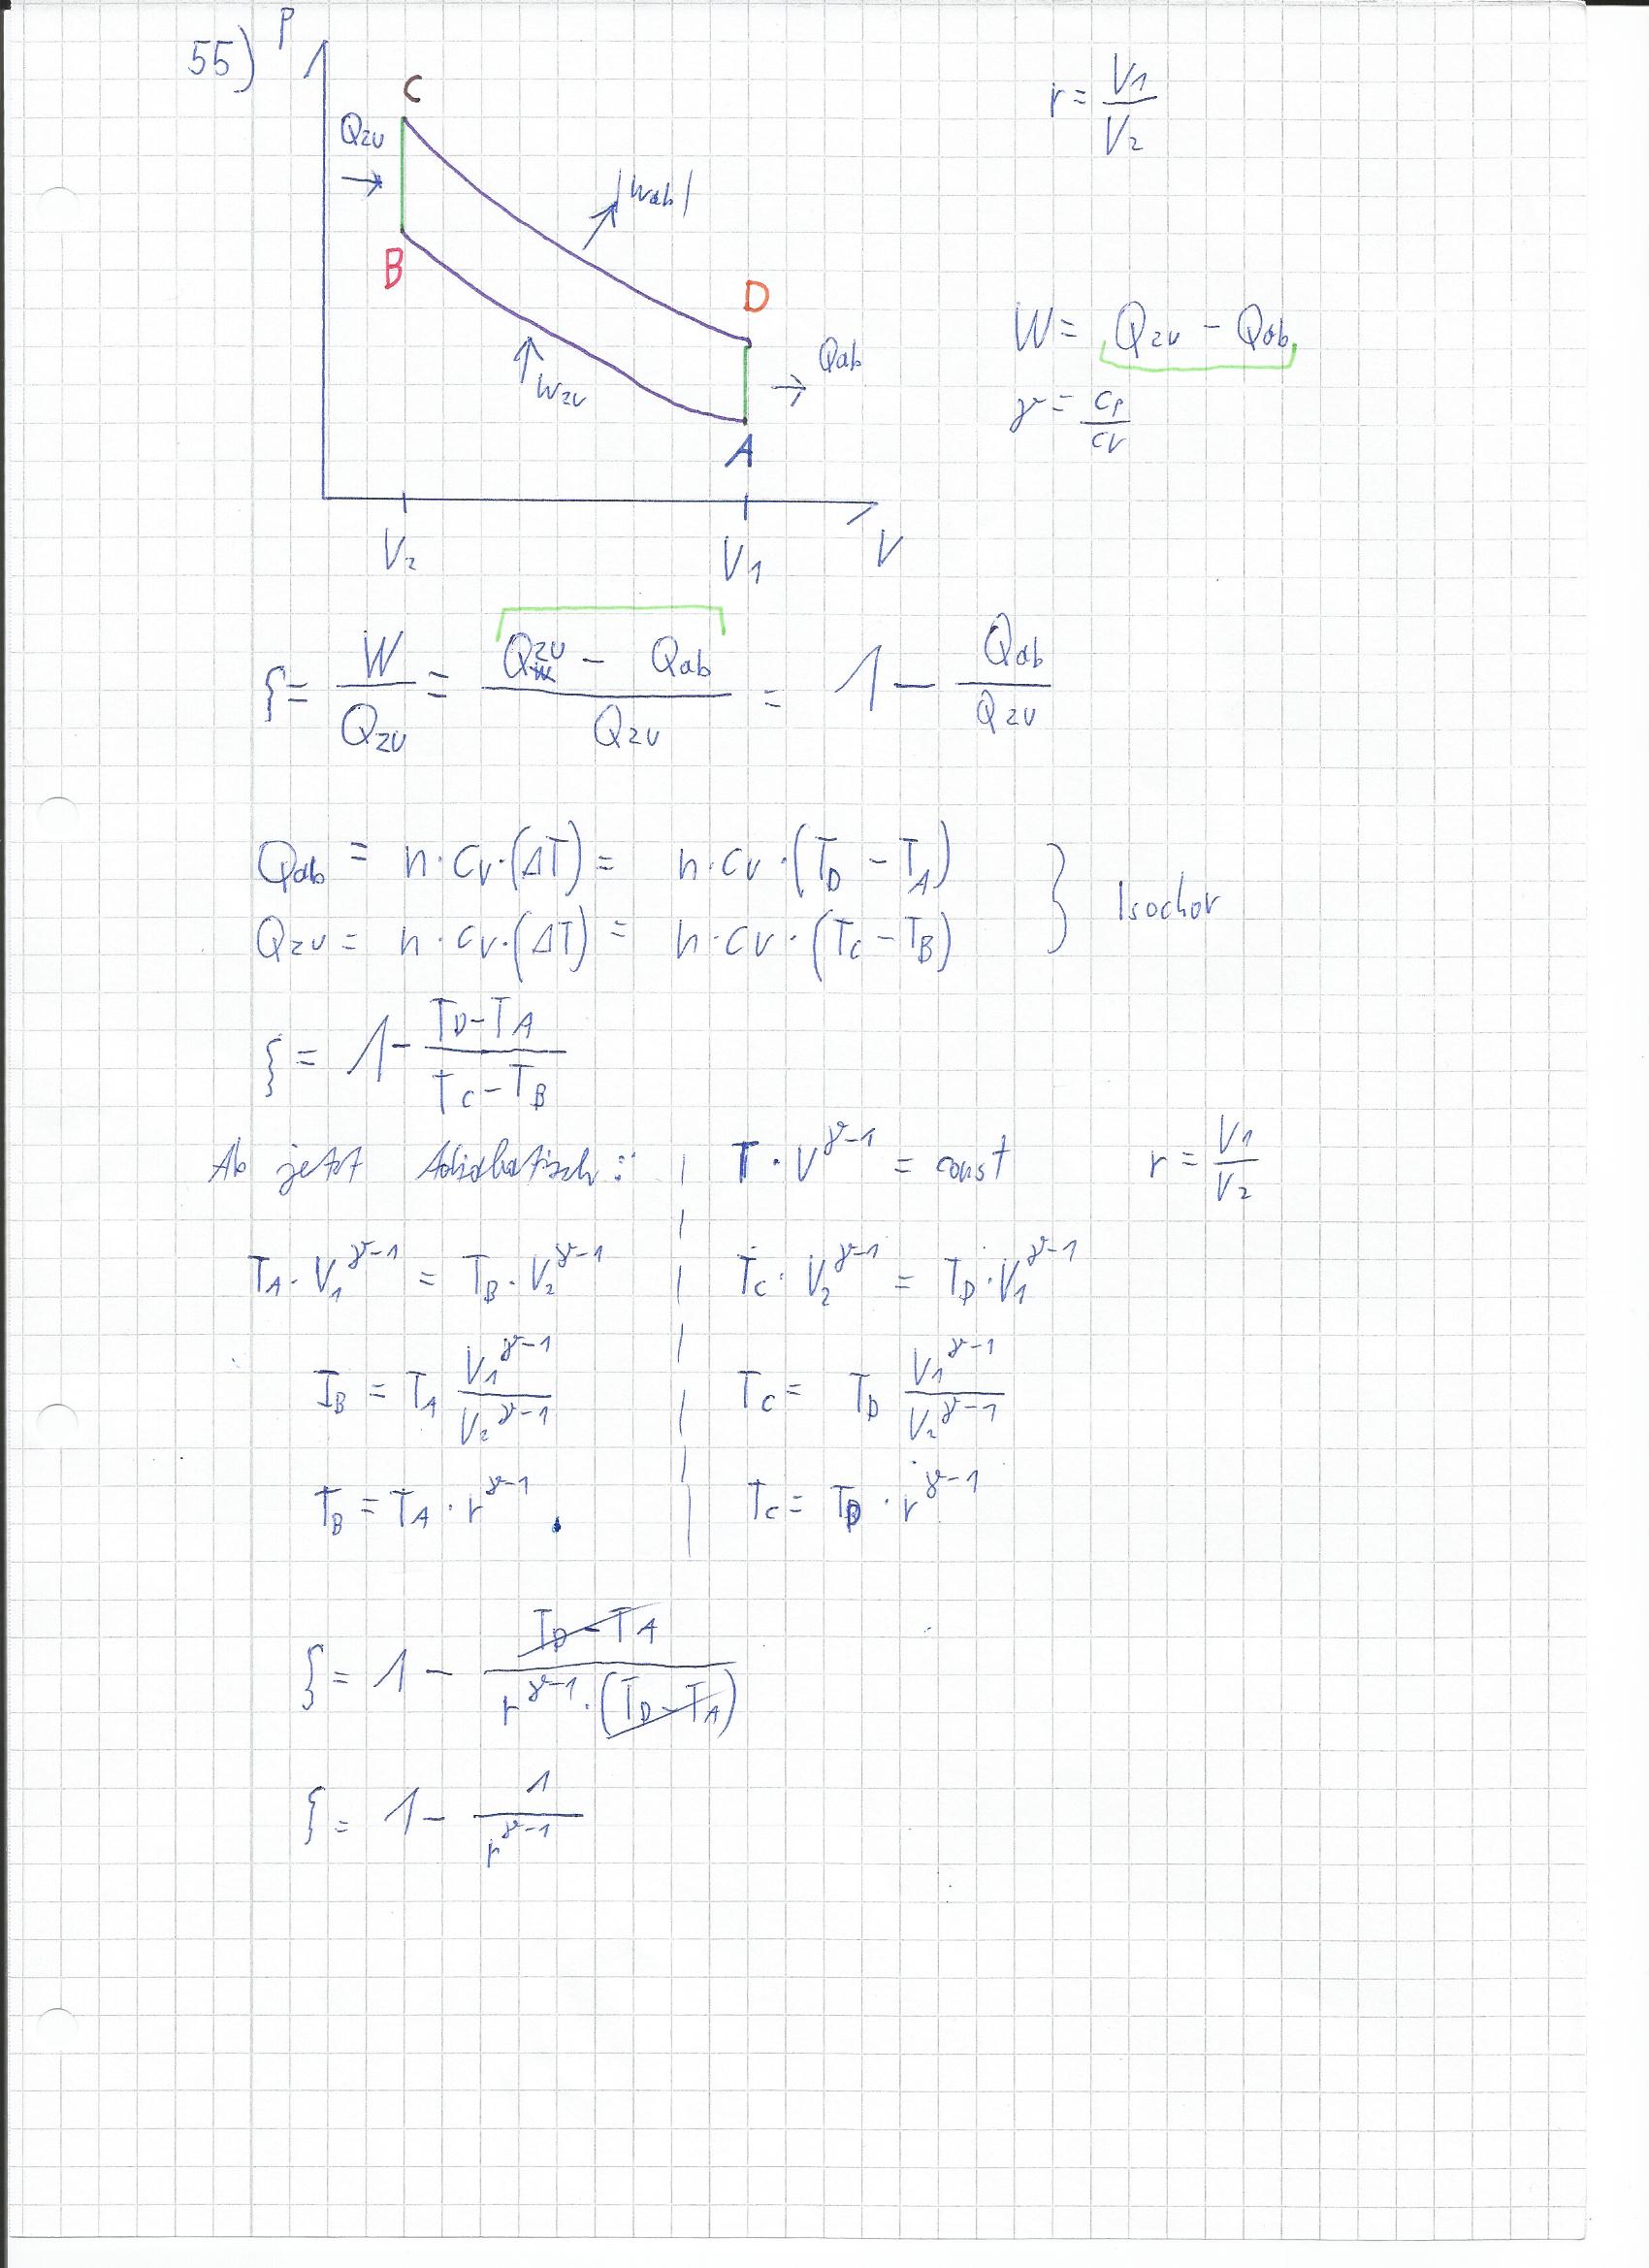 55)
P
C
Q_zu
→
|W_ab|
B
D
Q_ab
→
W_zu
A
V_2
V_1
V
r = V_1/V_2
W = Q_zu - Q_ab
γ = C_p/C_V
ξ = W/Q_zu = (Q_zu - Q_ab)/Q_zu = 1 - Q_ab/Q_zu
Q_ab = n · C_V · (ΔT) = n · C_V · (T_D - T_A)
Q_zu = n · C_V · (ΔT) = n · C_V · (T_C - T_B)
} Isochor
ξ = 1 - (T_D - T_A)/(T_C - T_B)
Ab jetzt Adiabatisch: T · V^(γ-1) = const r = V_1/V_2
T_A · V_1^(γ-1) = T_B · V_2^(γ-1) T_C · V_2^(γ-1) = T_D · V_1^(γ-1)
T_B = T_A V_1^(γ-1)/V_2^(γ-1) T_C = T_D V_1^(γ-1)/V_2^(γ-1)
T_B = T_A · r^(γ-1) T_C = T_D · r^(γ-1)
ξ = 1 - (T_D - T_A)/(r^(γ-1) · (T_D - T_A))
ξ = 1 - 1/r^(γ-1)